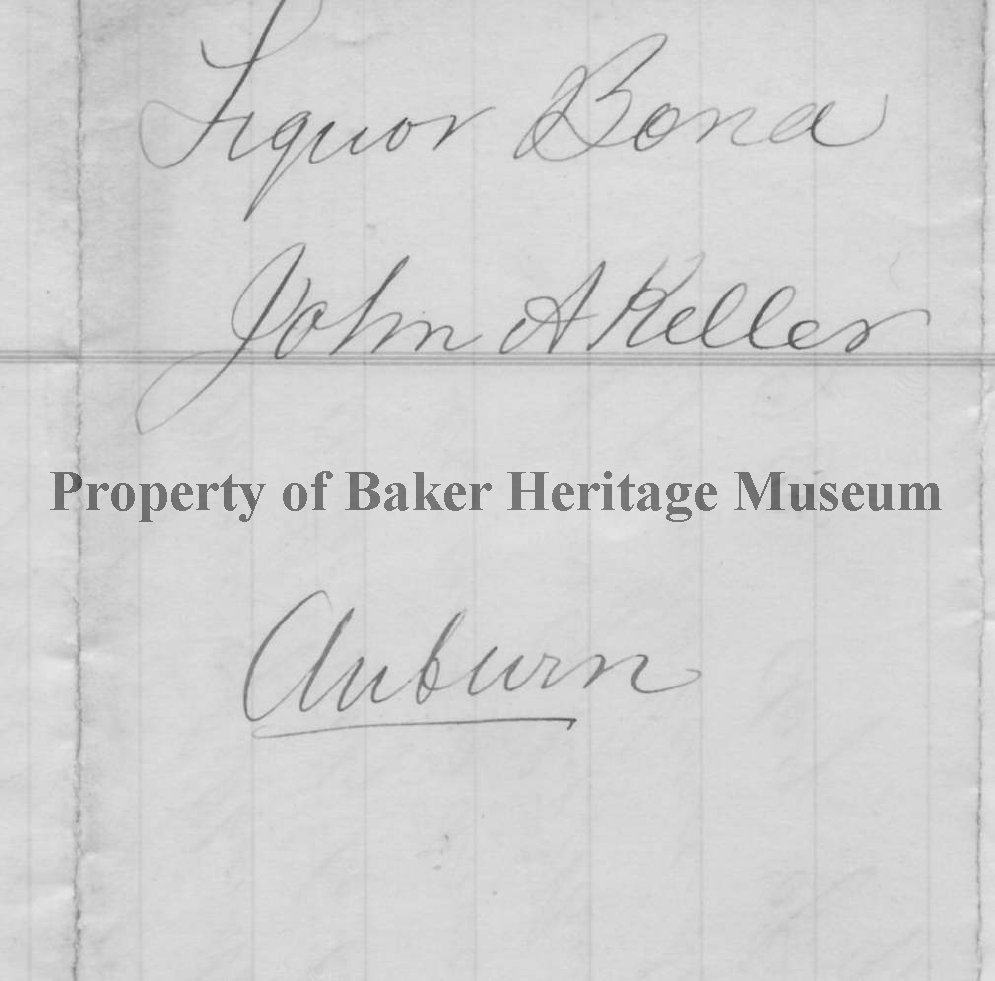 Liquor Bond
John A Keller
Property of Baker Heritage Museum
Auburn